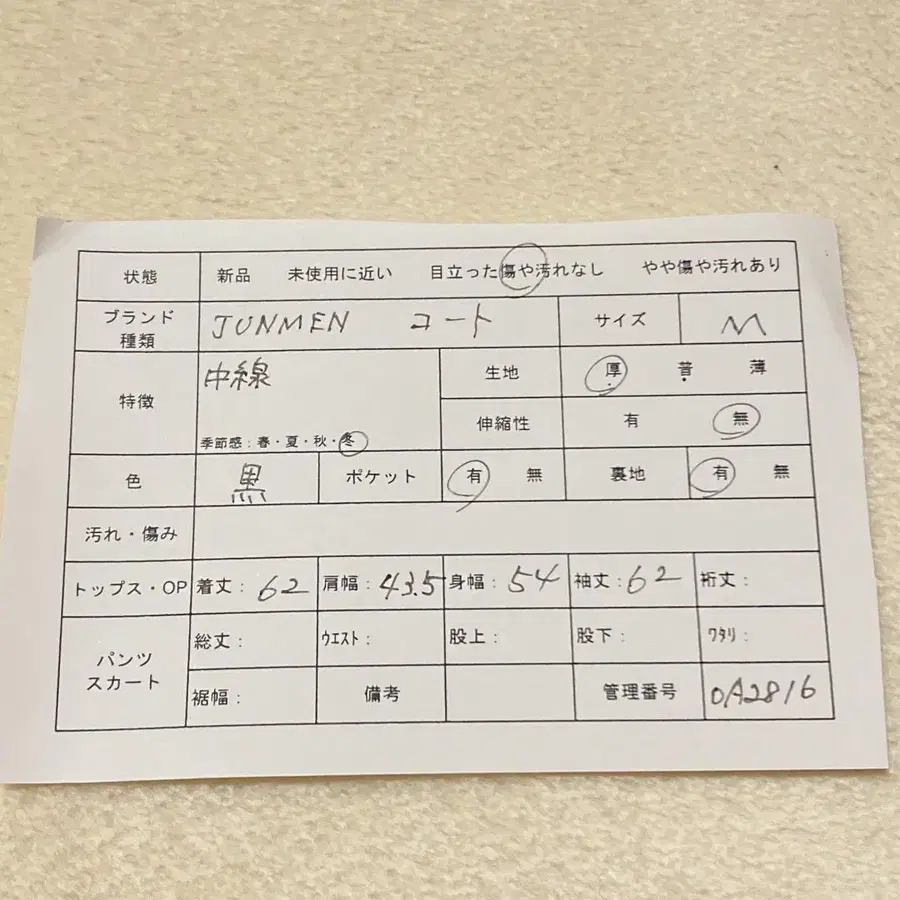 状態 新品 未使用に近い 目立った傷や汚れなし やや傷や汚れあり
ブランド 種類 JUNMEN コート サイズ M
特徴 中線 生地 厚・普・薄
季節感:春・夏・秋・冬 伸縮性 有 無
色 黒 ポケット 有 無 裏地 有 無
汚れ・傷み
トップス・OP 着丈:62 肩幅:43.5 身幅:54 袖丈:62 裄丈:
パンツ スカート 総丈: ウエスト: 股上: 股下: ワタリ:
裾幅: 備考 管理番号 0A2816